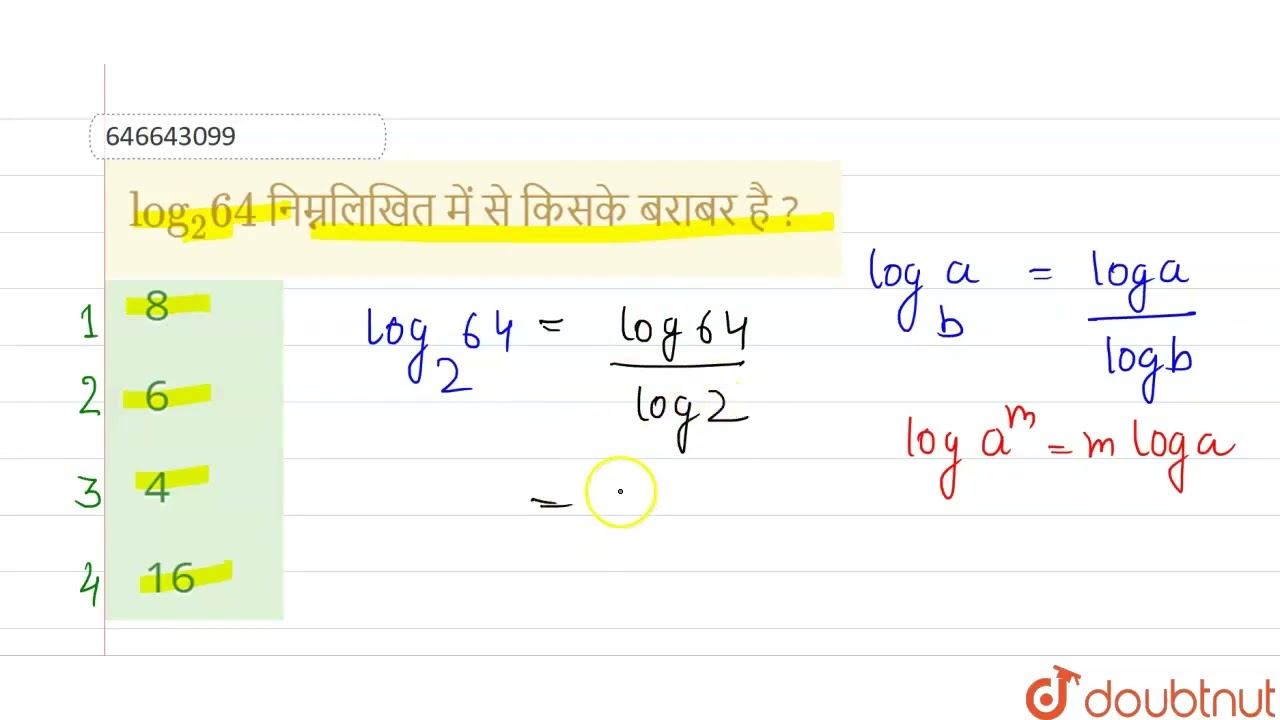 646643099
log₂64 निम्नलिखित में से किसके बराबर है ?
1 8
2 6
3 4
4 16
log₂ 64 = log 64 / log 2
=
log_b a = log a / log b
log a^m = m log a
doubtnut